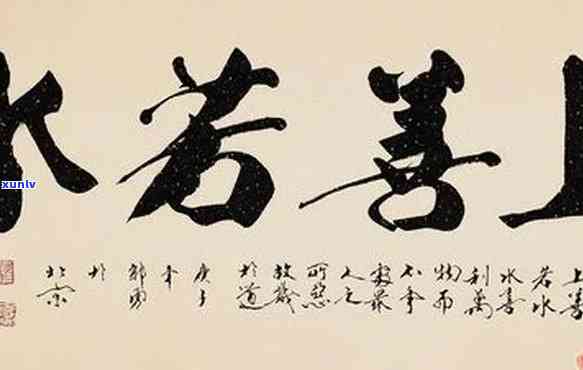 上善若水
上善
若水
水善
利萬
物而
不争
處眾
人之
所惡
故幾
於道
庚子
年
於
北京
xunlv